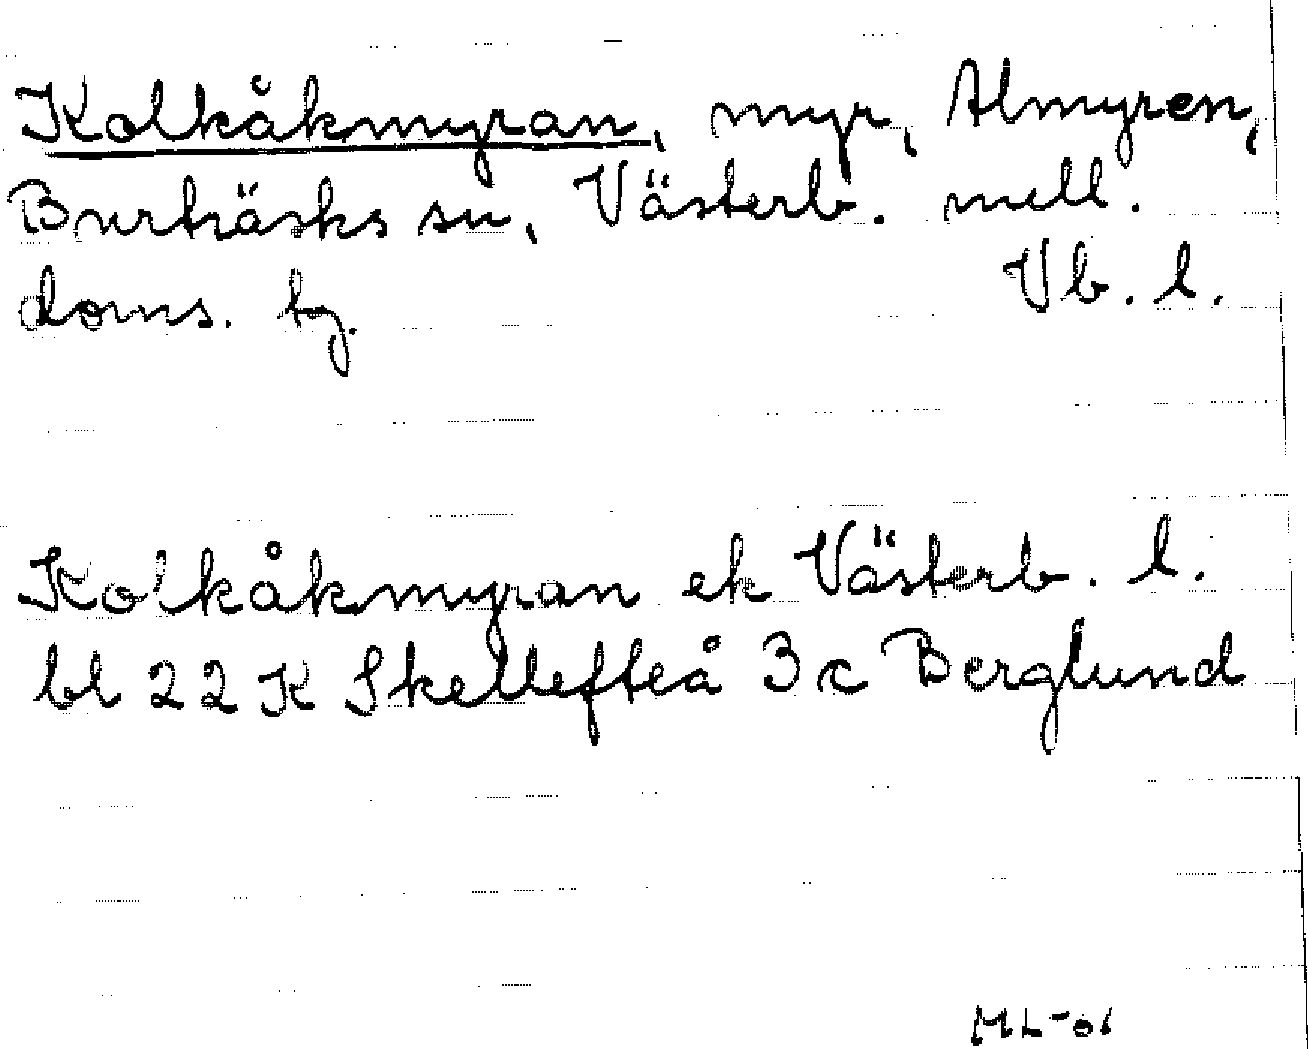 Kolkåkmyran, myr, Almyren,
Burträsks sn, Västerb. mell.
doms. hg. Vb. l.
Kolkåkmyran ek Västerb. l.
bl 22 K Skellefteå 3 c Berglund
ML-01